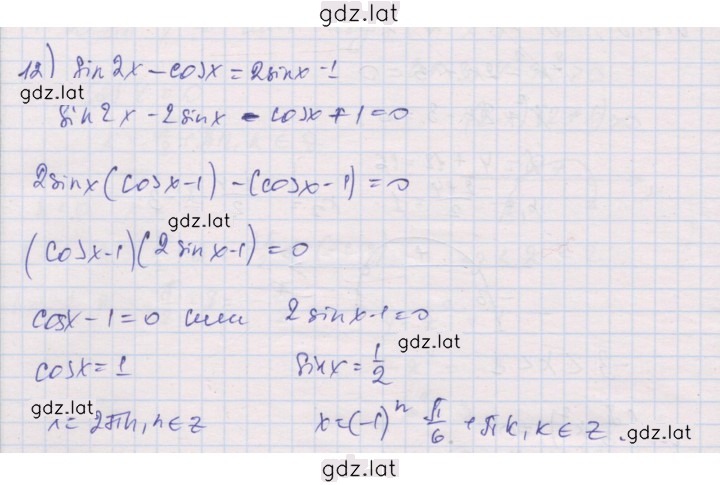 gdz.lat
12) sin2x - cosx = 2sinx - 1
gdz.lat
sin2x - 2sinx - cosx + 1 = 0
2sinx(cosx - 1) - (cosx - 1) = 0
gdz.lat
(cosx - 1)(2sinx - 1) = 0
cosx - 1 = 0 или 2sinx - 1 = 0
gdz.lat
cosx = 1 sinx = 1/2
gdz.lat
x = 2πn, n ∈ z x = (-1)^n π/6 + πk, k ∈ z.
gdz.lat
gdz.lat